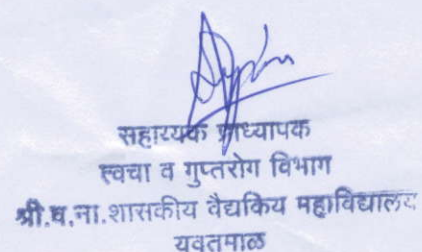 सहाय्यक प्राध्यापक
त्वचा व गुप्तरोग विभाग
श्री.व.ना.शासकीय वैद्यकिय महाविद्यालय
यवतमाळ